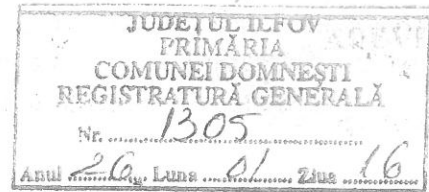 JUDEȚUL ILFOV
PRIMĂRIA
COMUNEI DOMNEȘTI
REGISTRATURĂ GENERALĂ
Nr. 1305
Anul 26 Luna 01 Ziua 16